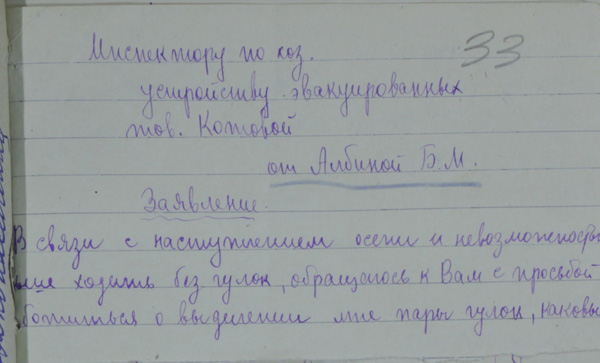 Инспектору по хоз. 33
устройству эвакуированных
тов. Котовой
от Албиной Б.М.
Заявление.
В связи с наступлением осени и невозможность
ходить без чулок, обращаюсь к Вам с просьбой
о выделении мне пары чулок, каковы